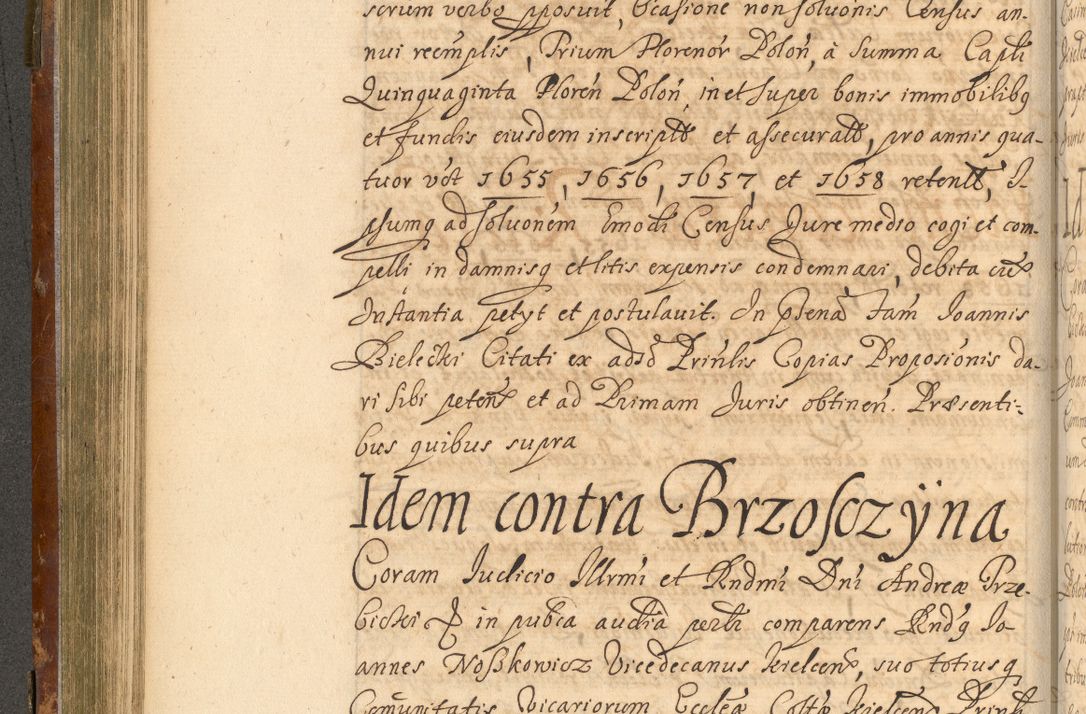 scrium verbo pposuit, Ocasione non solvonis Census an-
nui reemplis, Trium Florenor Polon, à Summa Capli
Quinquaginta Floren Polon, in et super bonis immobilibq
et fundis eiusdem inscriptt et assecuratt, pro annis qua-
tuor vdt 1655, 1656, 1657, et 1658 retentt, I-
psumq ad solvonem Emodi Census Jure medio cogi et com-
pelli in damnisq et litis expensis condemnari, debita cu
Instantia petyt et postulavit. In psena Fam Joannis
Bielecki Citati ex adso Prinlis Copias Proposionis da-
ri sibi peten et ad Primam Juris obtinen. Præsenti-
bus quibus supra
Idem contra Brzosczÿna
Coram Judicio Illrmi et Rndmi Dni Andreæ Trze-
bicki & in pubca audia perlr comparens Rndq Jo-
annes Noßkowicz Vicedecanus Kielcen, suo totiusq
Comunitatis Vicariorum Eccleæ Kielcen